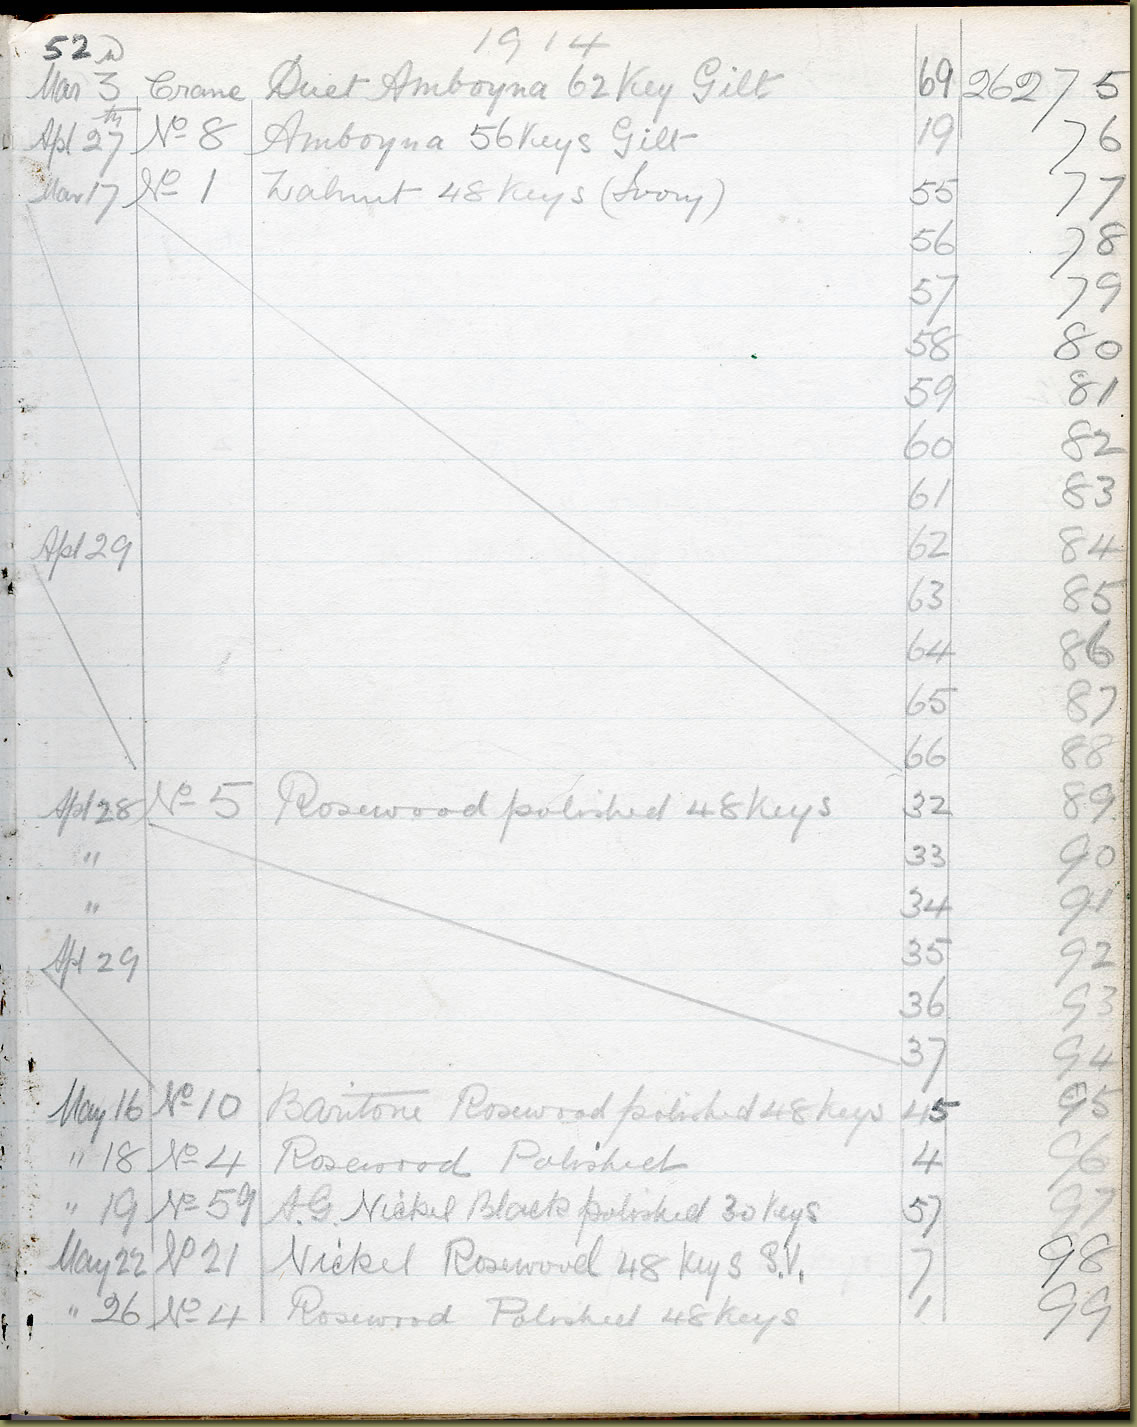 52
1914
Mar 3 Crane Duet Amboyna 62 Key Gilt 69 26275
Apl 27th No 8 Amboyna 56 Keys Gilt 19 76
Mar 17 No 1 Walnut 48 Keys (Ivory) 55 77
56 78
57 79
58 80
59 81
60 82
61 83
Apl 29 62 84
63 85
64 86
65 87
66 88
Apl 28 No 5 Rosewood polished 48 Keys 32 89
" 33 90
" 34 91
Apl 29 35 92
36 93
37 94
May 16 No 10 Baritone Rosewood polished 48 Keys 45 95
" 18 No 4 Rosewood Polished 4 96
" 19 No 59 A.G. Nickel Black polished 30 Keys 57 97
May 22 No 21 Nickel Rosewood 48 Keys S.V. 7 98
" 26 No 4 Rosewood Polished 48 Keys 1 99